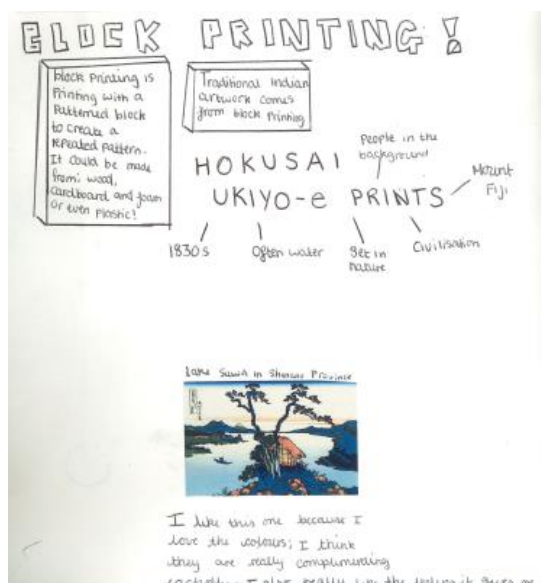 BLOCK PRINTING!
block Printing is
Printing with a
Patterned block
to create a
repeated pattern.
It could be made
from: wood,
cardboard and foam
or even plastic!
Traditional Indian
artwork comes
from block printing
People in the
background
HOKUSAI
UKIYO-e PRINTS
Mount
Fiji
1830s
Often water
Set in
nature
Civilisation
Lake Suwa in Province
I like this one because I
love the colours; I think
they are really complimenting
I also really like the it gives me